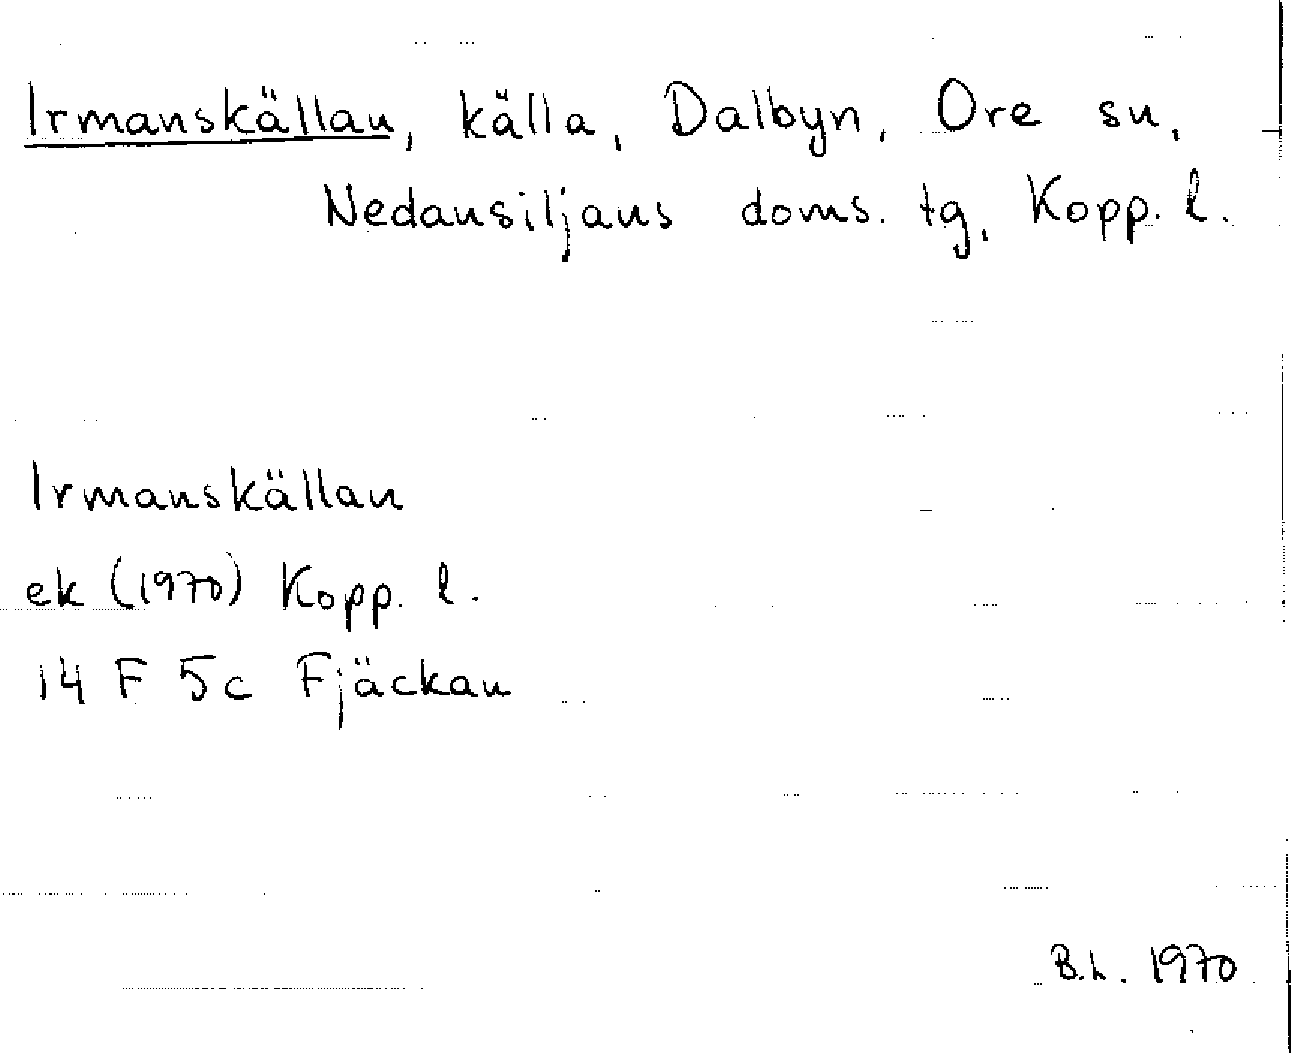 Irmanskällan, källa, Dalbyn, Ore sn,
Nedansiljans doms. tg, Kopp. l.
Irmanskällan
ek (1970) Kopp. l.
14 F 5c Fjäckan
B.L. 1970